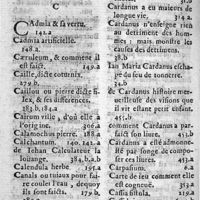 C
CAdmia & sa vertu.
142.a
Cadmia artificielle.
148.a.
Cæruleum, & comment il
est faict. 149.a
Caille, dicte coturnix.
279.b.
Caillou ou pierre dicte si-
lex, & ses differences.
182.a.
Cairum ville, d'où elle a
l'origine. 306.a
Calamochus pierre. 188.a
Calchantum. 140. 141.a
de Tehan Calculateur la
louange. 384.b, a.b
Calendula herbe. 195.a
Canals ou tuiaux pour fai
re couler l'eau, de quoy
ils sont faicts. 279.b
31.b
Cardanus a eu majeurs de
longue vie. 314.a
Cardanus n'enseigne rien
au detriment des hom-
mes, mais monstre les
causes des detriments.
38.b
Ian Maria Cardanus eschap
pe du feu de tonnerre.
34.b
de Cardanus histoire mer-
veilleuse des visions que
il vit estant petit enfant.
455.b
comment Cardanus a par-
faict son liure. 453.b
Cardanus a esté admonne-
sté par songe de compo-
ser ces liures. 453.a
Carpasium.
Carte ou la gemme elle
est cogneuë. 353.a
Cassia fistula. 259.a